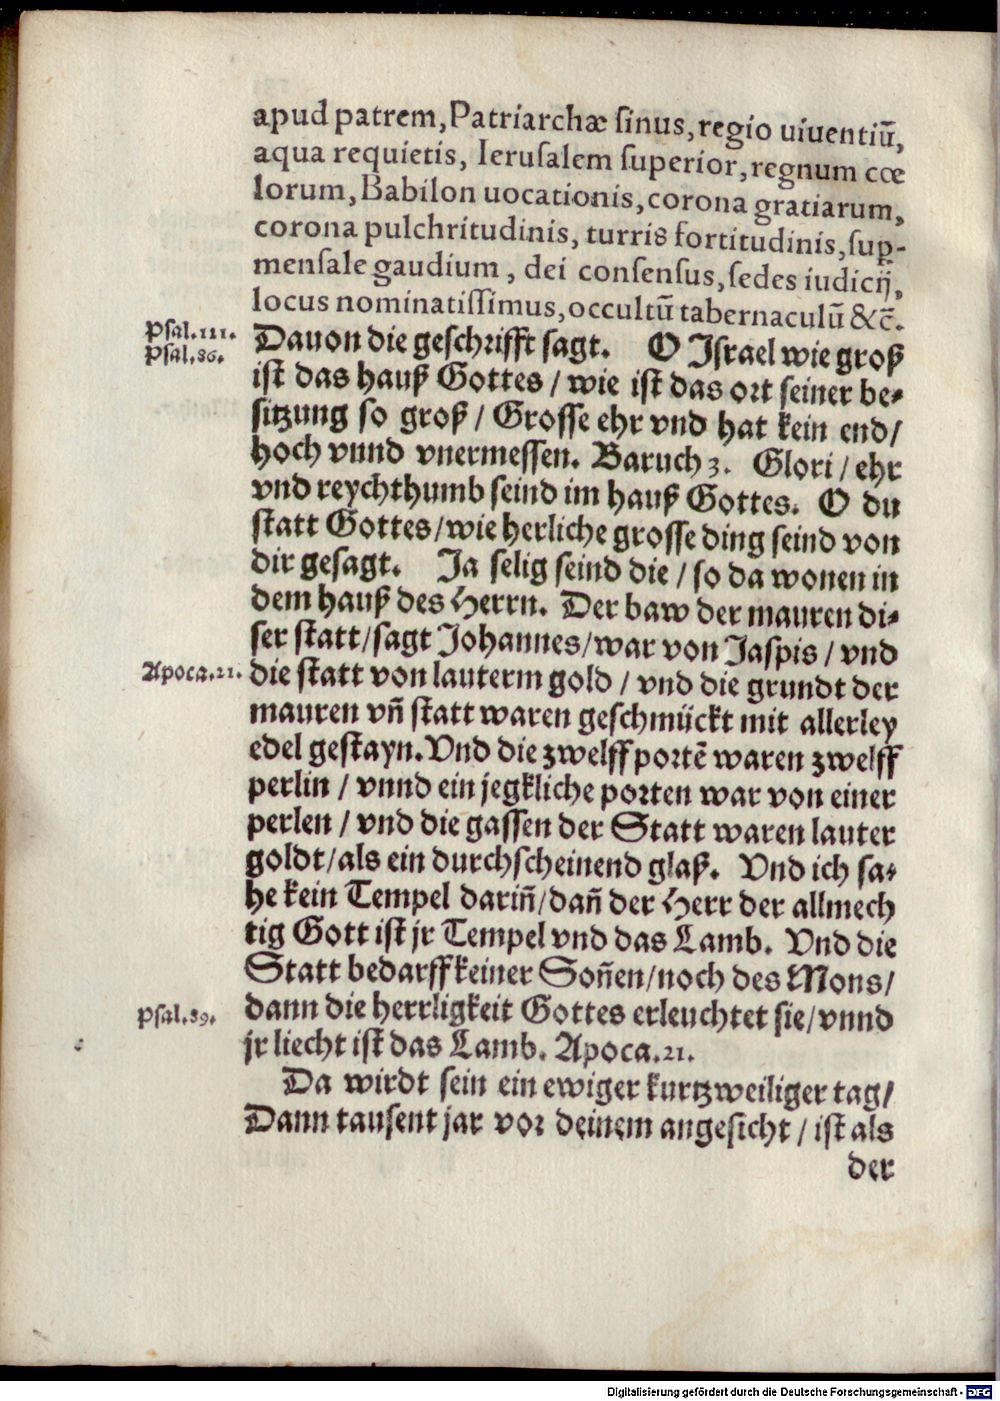 apud patrem, Patriarchæ sinus, regio uiuentiū,
aqua requietis, Ierusalem superior, regnum cœ
lorum, Babilon uocationis, corona gratiarum,
corona pulchritudinis, turris fortitudinis, sup-
mensale gaudium, dei consensus, sedes iudicij,
locus nominatissimus, occultū tabernaculū &c̄.
Psal.111.
Dauon die geschrifft sagt. O Israel wie groß
Psal.86.
ist das hauß Gottes / wie ist das ort seiner be-
sitzung so groß / Grosse ehr vnd hat kein end /
hoch vnnd vnermessen. Baruch 3. Glori / ehr
vnd reychthumb seind im hauß Gottes. O du
statt Gottes / wie herliche grosse ding seind von
dir gesagt. Ja selig seind die / so da wonen in
dem hauß des Herrn. Der baw der mauren di-
ser statt / sagt Johannes / war von Jaspis / vnd
Apoca.21.
die statt von lauterm gold / vnd die grundt der
mauren vñ statt waren geschmückt mit allerley
edel gestayn. Vnd die zwelff portē waren zwelff
perlin / vnnd ein jegkliche porten war von einer
perlen / vnd die gassen der Statt waren lauter
goldt / als ein durchscheinend glaß. Vnd ich sa-
he kein Tempel dariñ / dañ der Herr der allmech
tig Gott ist jr Tempel vnd das Lamb. Vnd die
Statt bedarff keiner Soñen / noch des Mons /
Psal.89.
dann die herrligkeit Gottes erleuchtet sie / vnnd
jr liecht ist das Lamb. Apoca.21.
Da wirdt sein ein ewiger kurtzweiliger tag /
Dann tausent jar vor deinem angesicht / ist als
der
Digitalisierung gefördert durch die Deutsche Forschungsgemeinschaft - DFG